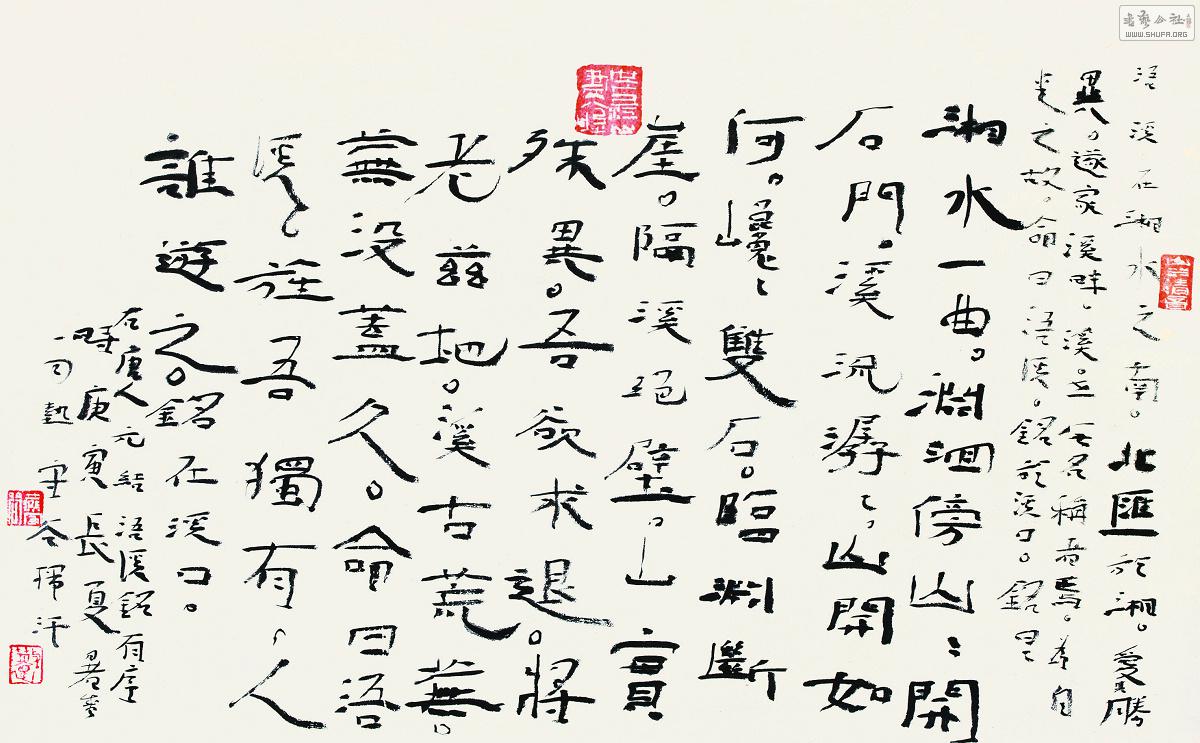 浯溪在湘水之南。北匯於湘。愛其勝
異。遂家溪畔。溪世無名稱者焉。為自
愛之故。命曰浯溪。銘於溪口。銘曰
湘水一曲。淵洄傍山〻開
石門。溪流潺〻。山開如
何。巉〻雙石。臨淵斷
崖。隔溪絕壁。山實
殊異。吾欲求退。將
老茲地。溪古荒蕪。
蕪沒蓋久。命曰浯
溪〻旌吾獨有。人
誰遊之。銘在溪口。
右唐人元結浯溪銘有序
時庚寅長夏暑蒸
揮汗
書藝公社
WWW.SHUFA.ORG